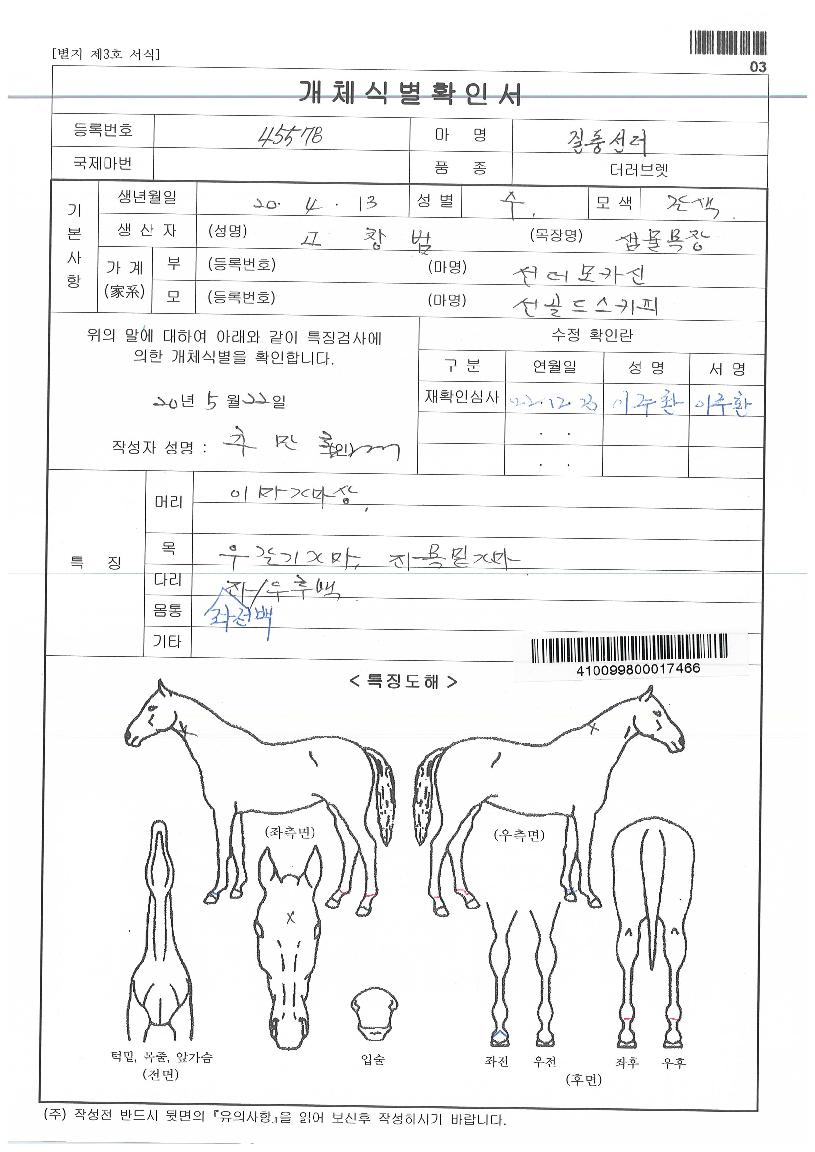 [별지 제3호 서식]
03
개체식별확인서
등록번호 45578 마 명 질풍선더
국제마번 품 종 더러브렛
기본사항
생년월일 20. 4. 13 성 별 수. 모 색 갈색.
생 산 자 (성명) 고 창 범 (목장명) 샘물목장
가 계 (家系) 부 (등록번호) (마명) 선더모카신
모 (등록번호) (마명) 선골드스키피
위의 말에 대하여 아래와 같이 특징검사에
의한 개체식별을 확인합니다.
20년 5월 22일
작성자 성명 : (인)
수정 확인란
구 분 연월일 성 명 서 명
재확인심사 22.12.20 이주환 이주환
. .
. .
특 징
머리 이마가마상.
목 우갈기가마, 좌목밑가마
다리 좌/우후백
좌전백
몸통
기타
410099800017466
< 특징도해 >
(좌측면)
(우측면)
턱밑, 목줄, 앞가슴
(전면)
입술
좌전 우전 좌후 우후
(후면)
(주) 작성전 반드시 뒷면의 『유의사항』을 읽어 보신후 작성하시기 바랍니다.